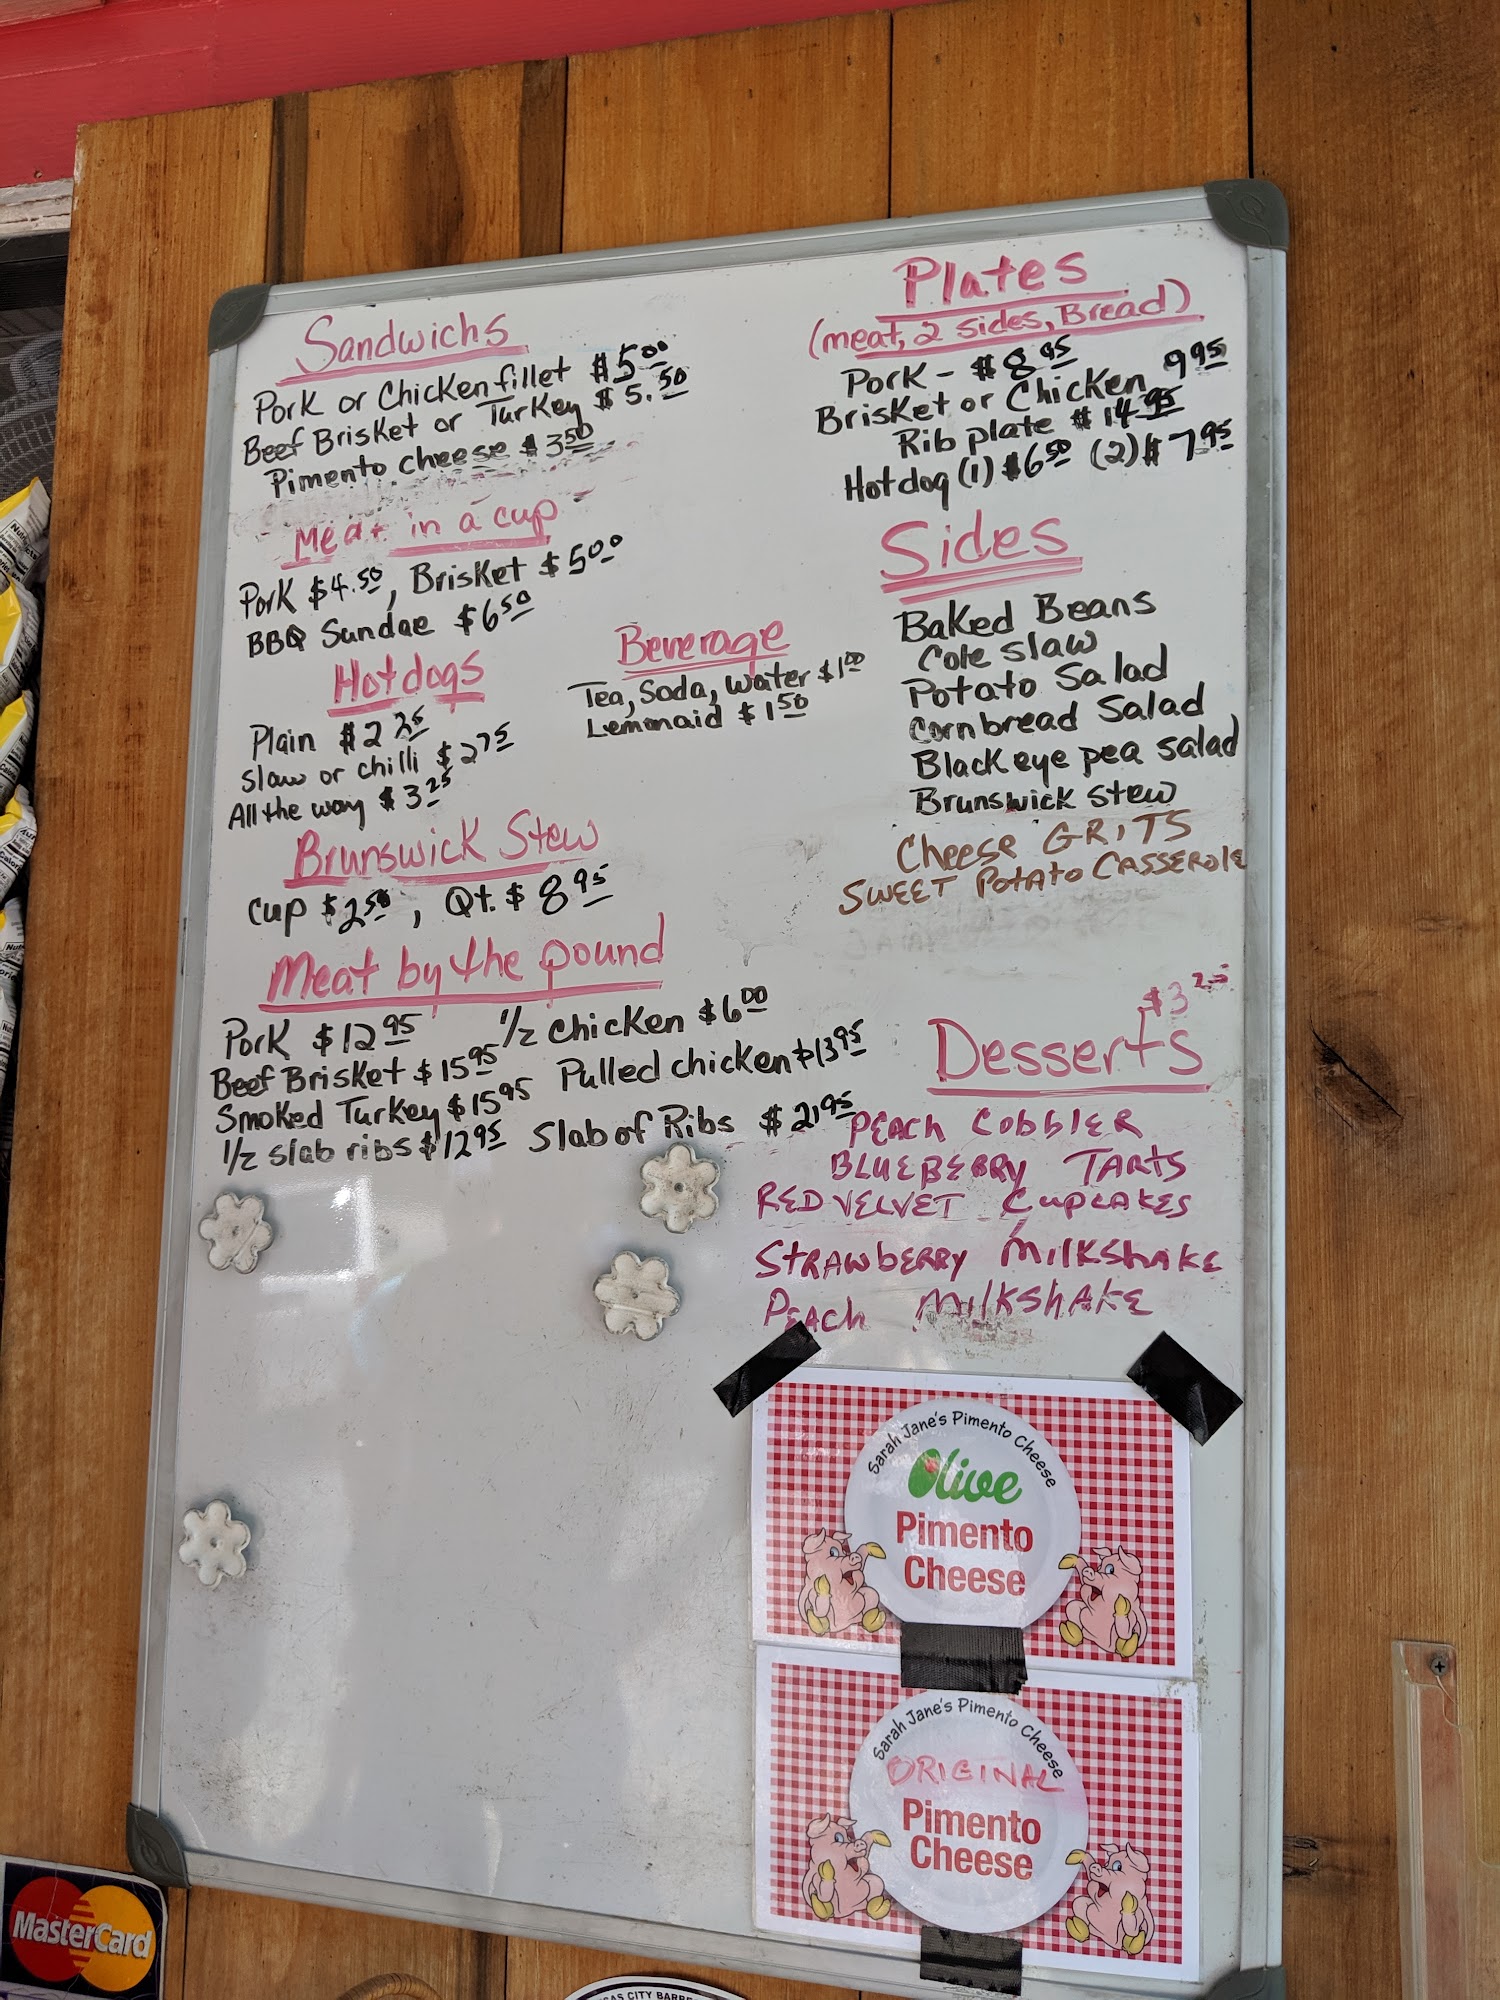 Sandwichs
Pork or Chicken fillet $5.00
Beef Brisket or Turkey $5.50
Pimento cheese $3.50
Meat in a cup
Pork $4.50, Brisket $5.00
BBQ Sundae $6.50
Hotdogs
Plain $2.25
Slaw or chilli $2.75
All the way $3.25
Beverage
Tea, Soda, water $1.00
Lemonaid $1.50
Brunswick Stew
Cup $2.50, Qt. $8.95
Meat by the pound
Pork $12.95 1/2 chicken $6.00
Beef Brisket $15.95 Pulled chicken $13.95
Smoked Turkey $15.95
1/2 slab ribs $12.95 Slab of Ribs $21.95
Plates
(meat, 2 sides, Bread)
Pork - $8.95
Brisket or Chicken 9.95
Rib plate $14.95
Hotdog (1) $6.50 (2) $7.95
Sides
Baked Beans
Cole slaw
Potato Salad
Cornbread Salad
Black eye pea salad
Brunswick stew
Cheese GRITS
SWEET POTATO CASSEROLE
Desserts
PEACH COBBLER
BLUEBERRY TARTS
RED VELVET CUPCAKES
STRAWBERRY MILKSHAKE
PEACH MILKSHAKE
Sarah Jane's Pimento Cheese
Olive
Pimento
Cheese
Sarah Jane's Pimento Cheese
ORIGINAL
Pimento
Cheese
MasterCard